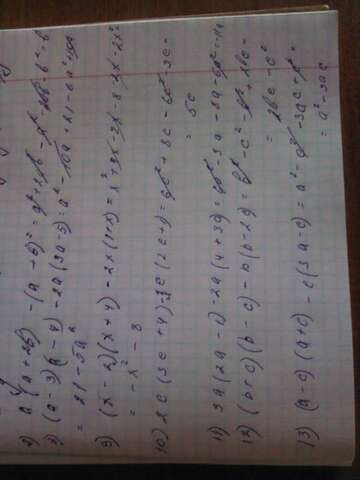 2) a(a+2b) - (a+b)² = a² + 2ab - a² - 2ab - b² =
7) (a-3)(a-7) - 2a(3a-5) = a² - 10a + 21 - 6a² + 10a
= 21 - 5a²
9) (x-2)(x+4) - 2x(1+x) = x² + 4x - 2x - 8 - 2x - 2x²
= -x² - 8
10) 2c(3c+4) - 3c(2c+1) = 6c² + 8c - 6c² - 3c =
= 5c
11) 3a(2a-1) - 2a(4+3a) = 6a² - 3a - 8a - 6a² =
12) (b+c)(b-c) - b(b-2c) = b² - c² - b² + 2bc =
= 2bc - c²
13) (a-c)(a+c) - c(3a-c) = a² - c² - 3ac + c² =
= a² - 3ac